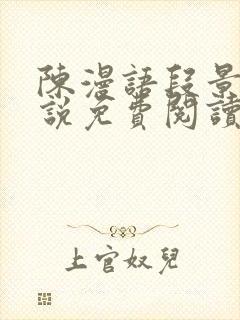 陳漫語段景
說免費閱讀
上官奴兒